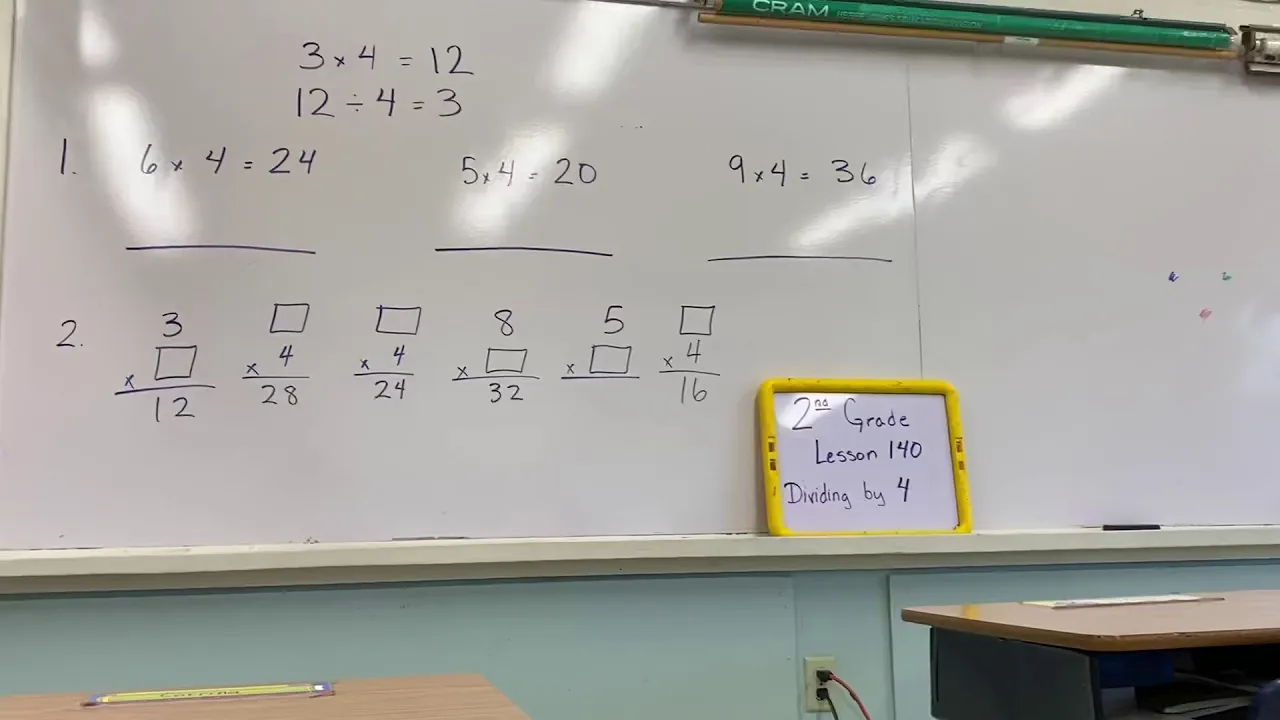 CRAM
3 × 4 = 12
12 ÷ 4 = 3
1. 6 × 4 = 24 5 × 4 = 20 9 × 4 = 36
2. 3 □ □ 8 5 □
× □ × 4 × 4 × □ × □ × 4
12 28 24 32 16
2nd Grade
Lesson 140
Dividing by 4